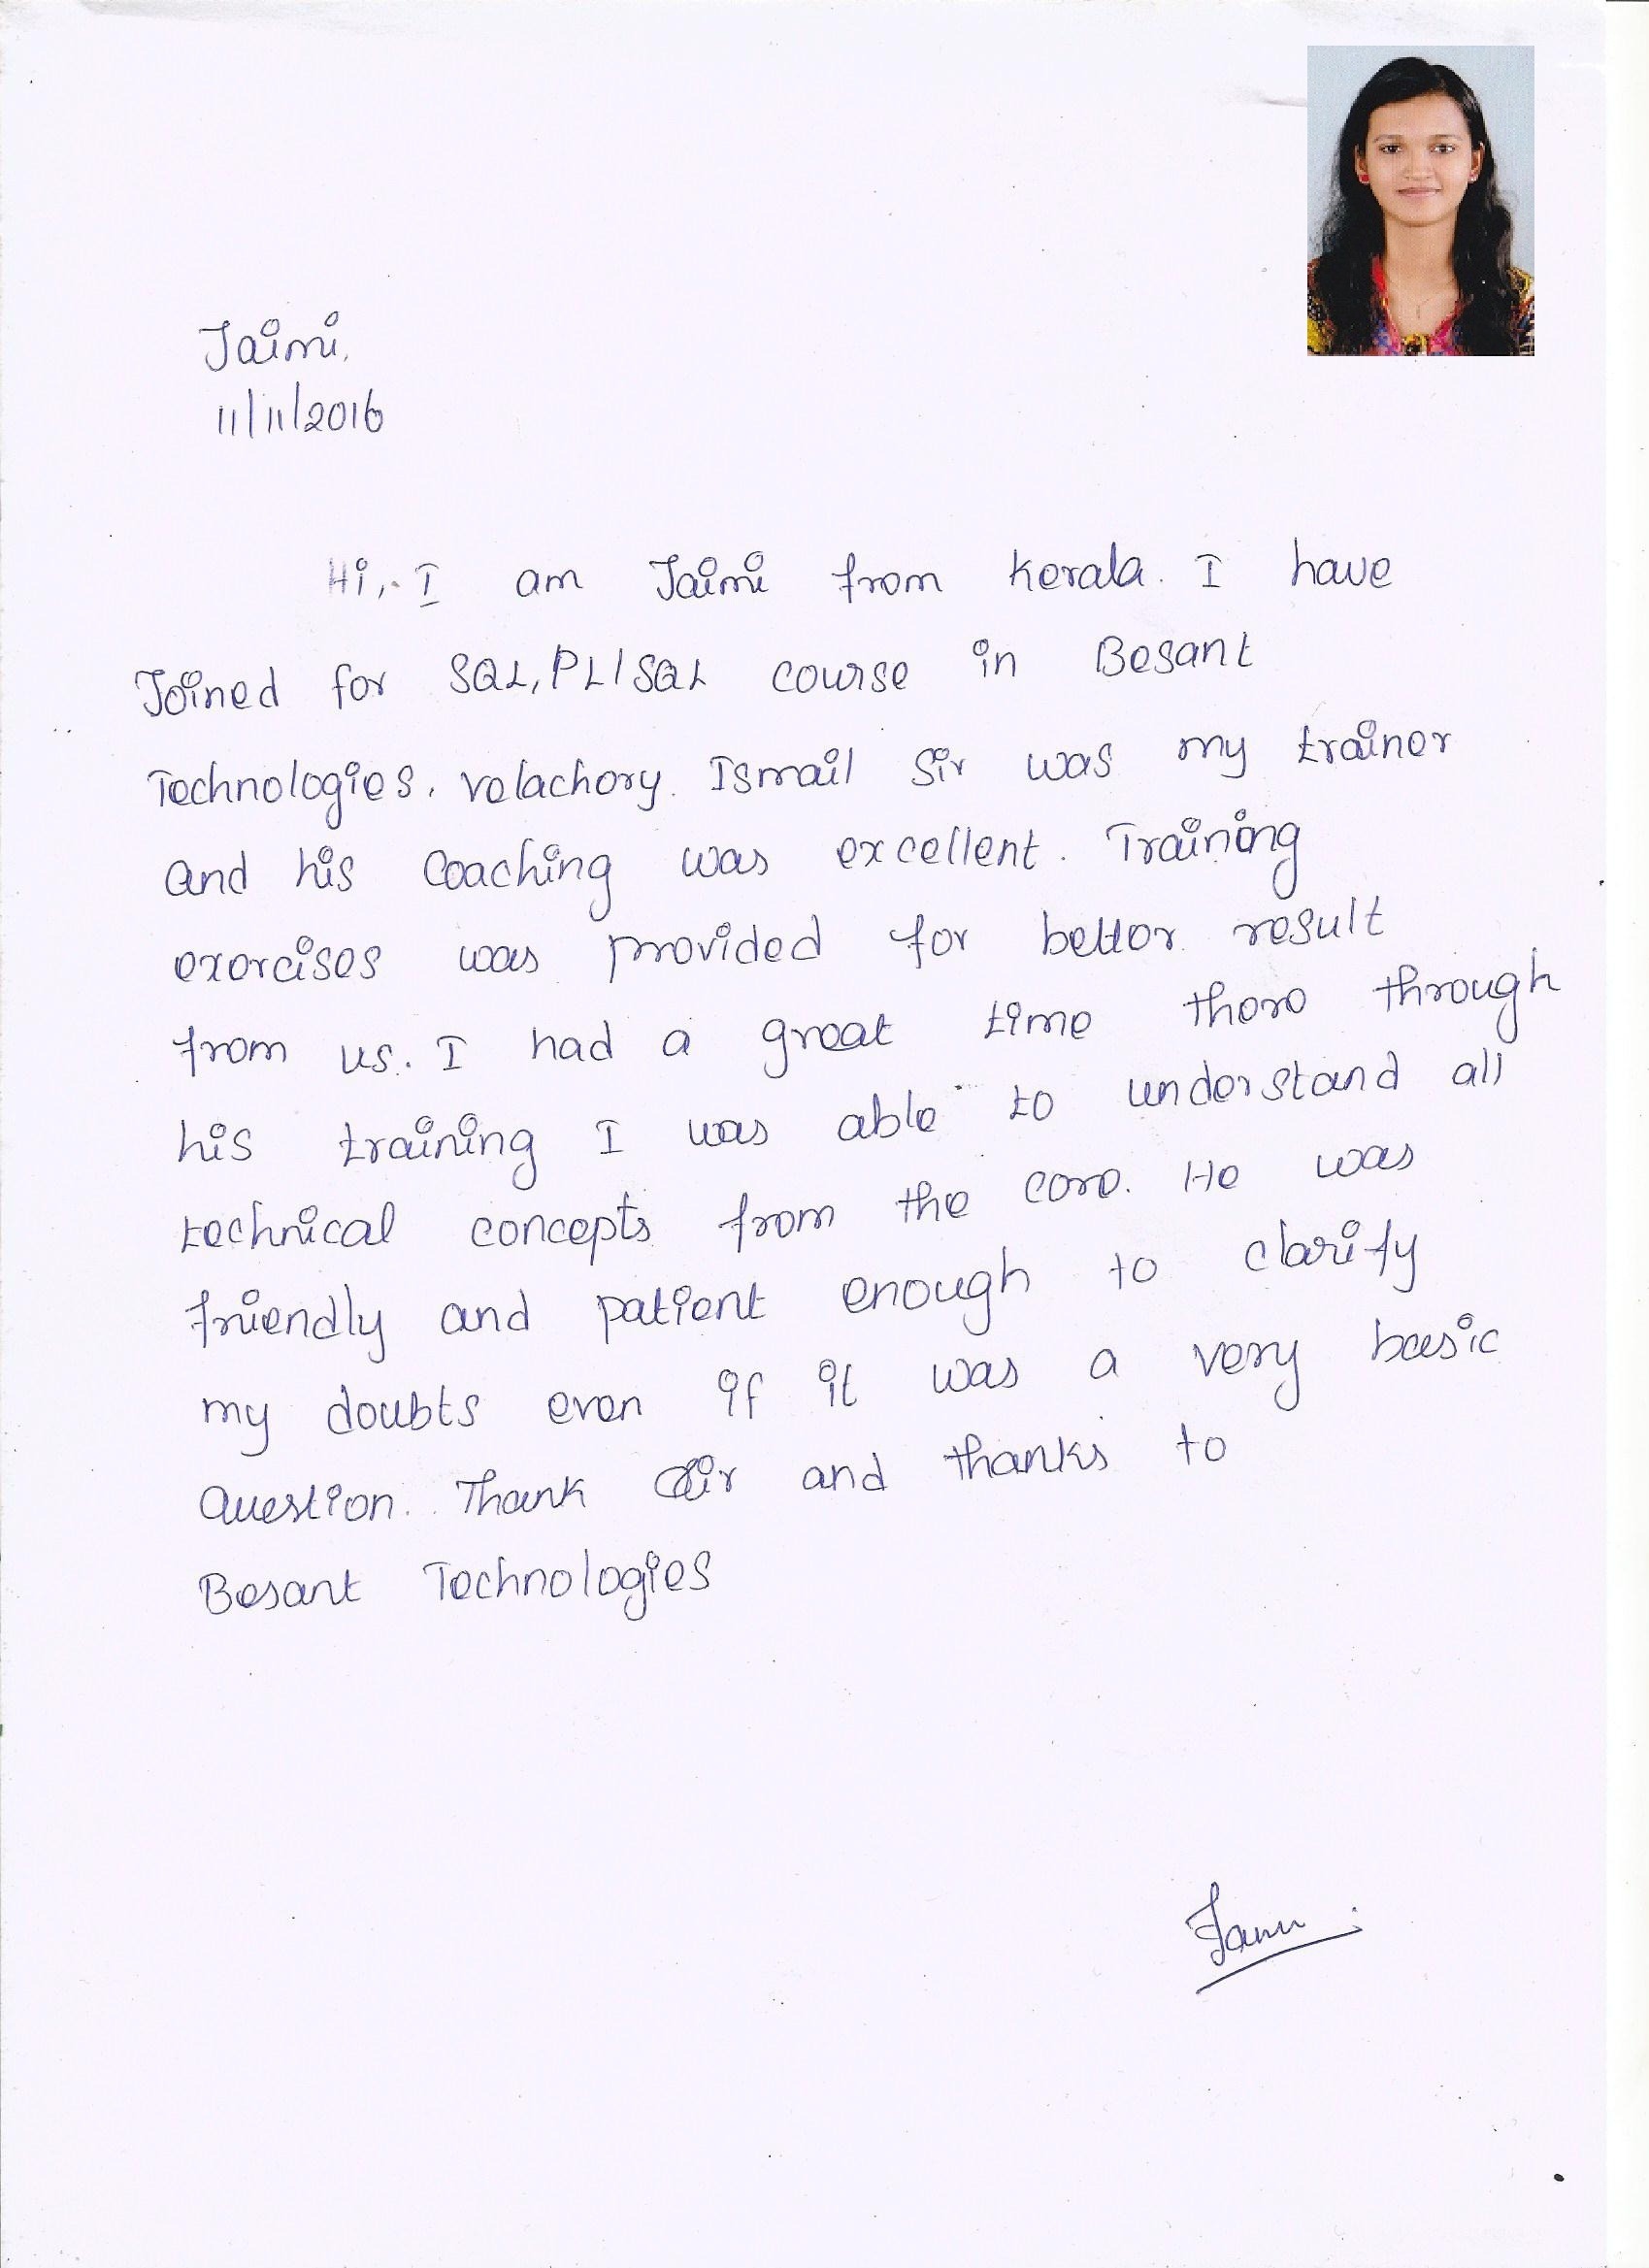 Jaimi.
11/11/2016
Hi, I am Jaimi from Kerala. I have
Joined for SQL, PL/SQL course in Besant
Technologies, velachery. Ismail Sir was my trainer
and his coaching was excellent. Training
exercises was provided for better result
from us. I had a great time there through
his training I was able to understand all
technical concepts from the core. He was
friendly and patient enough to clarify
my doubts even if it was a very basic
Question. Thank Sir and thanks to
Besant Technologies